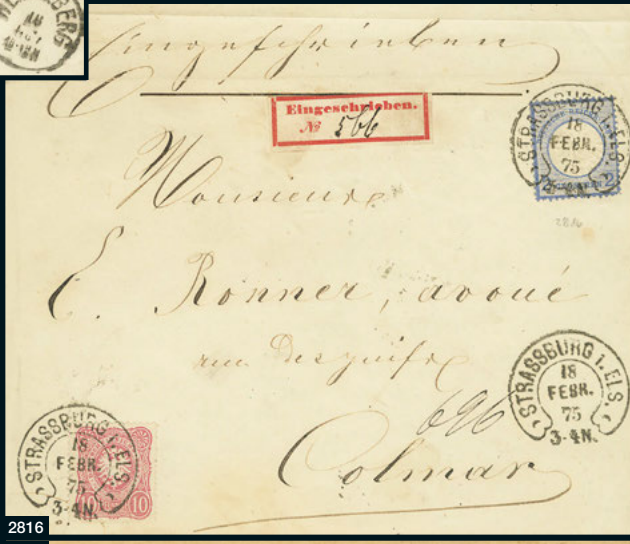 Eingeschrieben
Eingeschrieben.
№ 566
STRASSBURG I. ELS.
18
FEBR.
75
2
2816
Monsieur
E. Ronner, avoué
rue des juifs
STRASSBURG I. ELS.
18
FEBR.
75
3-4N.
696
Colmar
STRASSBURG I. ELS.
18
FEBR.
75
3-4N.
10
10
2816